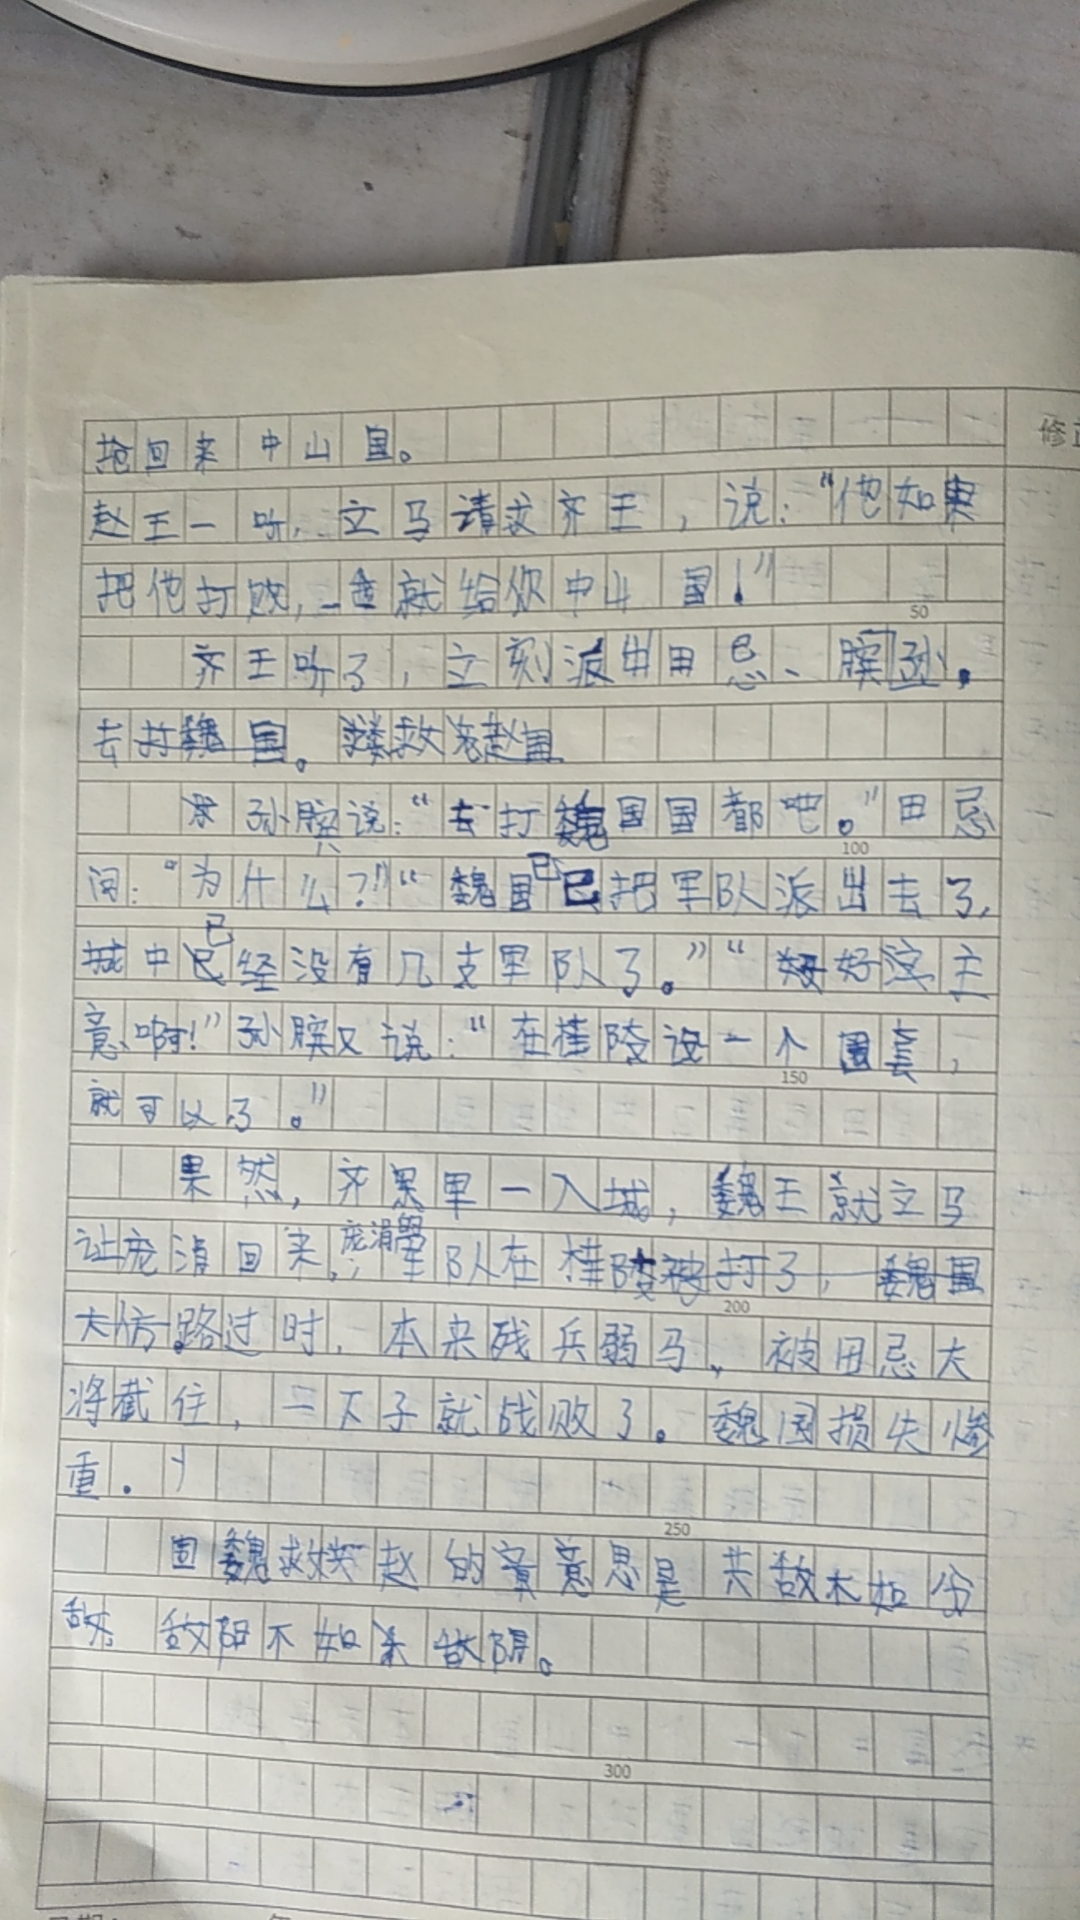 抢回来中山国。
修正
赵王一听，立马请求齐王，说：“他如果
把他打败，一定就给你中山国！”
50
齐王听了，立刻派出田忌、膑孙。
去打魏国。救赵国
孙膑说：“去打魏国国都吧。”田忌
100
问：“为什么？”“魏国已把军队派出去了，
城中已经没有几支军队了。”“好这主
意啊！”孙膑又说：“在桂陵设一个圈套，
150
就可以了。”
果然，齐军一入城，魏王就立马
让庞涓回来，庞涓军队在桂陵被打了，魏国
200
大伤路过时，本来残兵弱马，被田忌大
将截住，一下子就战败了。魏国损失惨
重。
250
围魏救赵的意思是共敌不如分
敌，敌阳不如敌阴。
300